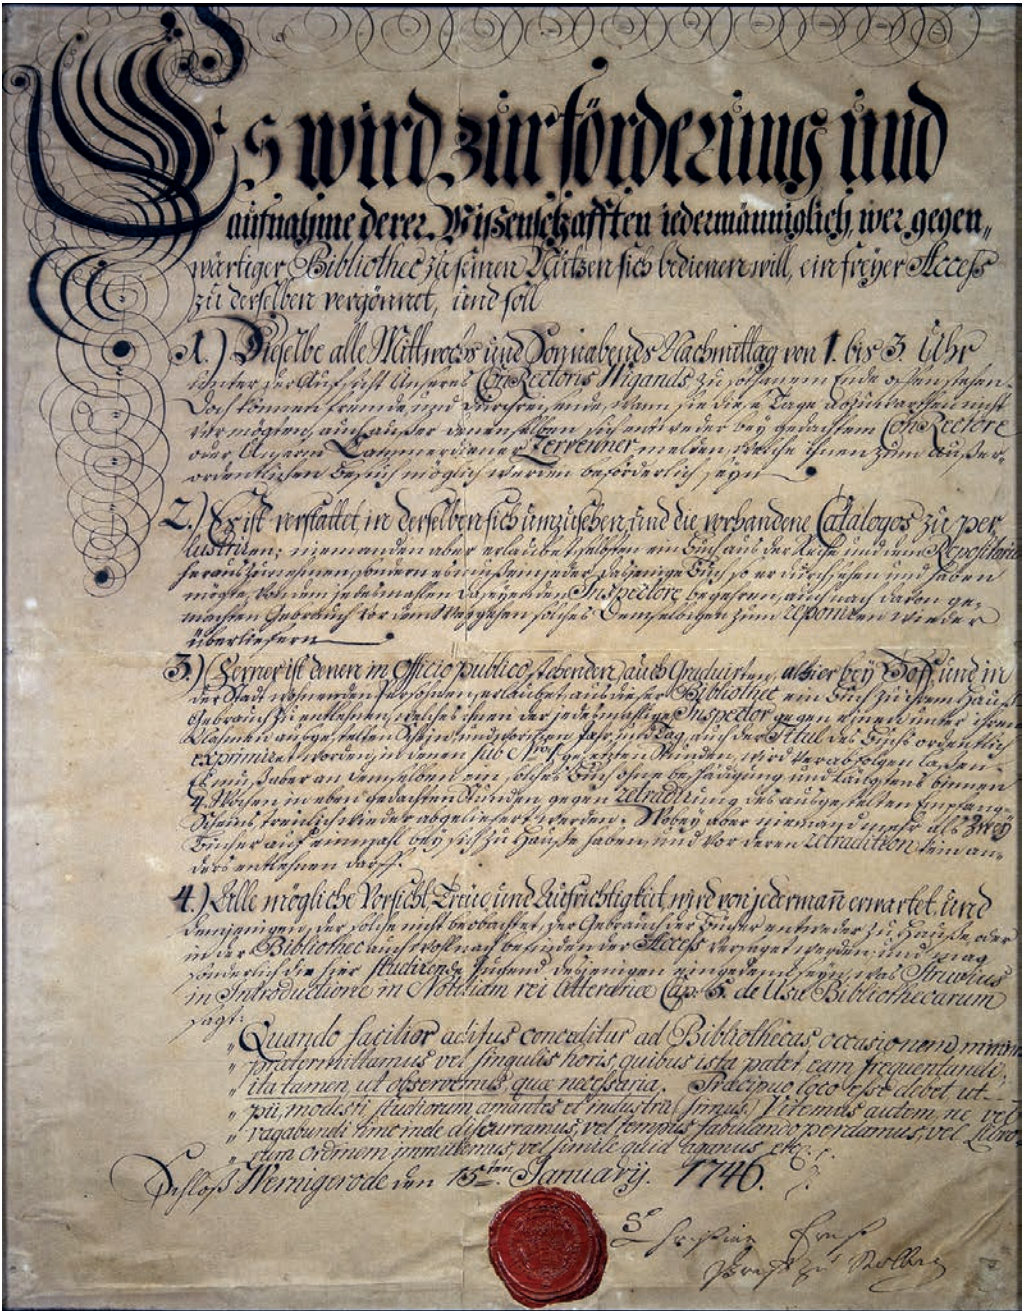 Es wird zur förderung und
aufnahme derer Wissenschafften jedermänniglich, wer gegen„
wärtiger Bibliothec zu seinen Nutzen sich bedienen will, ein freyer Access
zu derselben vergönnet, und soll
1.) Dieselbe alle Mittwochs und Sonnabends Nachmittag von 1. bis 3. Uhr
unter der Aufsicht Unseres ConRectoris Wigands zu solchem Ende offen stehen.
Doch können fremde, und durchreisende, wann sie diese Tage abzuwarten nicht
vermögten, auch außer denenselben sich entweder bey gedachtem ConRectore
oder Unserm Cammerdiener Zervenner melden, welche ihnen zum außer„
ordentlichen Besuch möglich werden beförderlich seyn
2.) Es ist verstattet, in derselben sich umzusehen, und die vorhandene Catalogos zu per
lustriren; niemanden aber erlaubet, selbsten ein Buch aus der Reihe und dem Repositorio
herauszunehmen, sondern es muß ein jeder dasjenige Buch so er durchsehen und haben
mögte, von dem jedesmahlen daseyenden Inspectore begehren, auch nach davon ge„
machten Gebrauch vor dem Weggehen solches demselbigen zum reponiren wieder
überliefern
3.) Ferner ist denen in Officio publico stehenden, auch Graduirten, alhier bey Hoff, und in
der Stadt wohnenden Persohnen, erlaubet, aus dieser Bibliothec ein Buch zu ihrem Hauß
Gebrauch zu entlehnen, welches ihnen der jedesmahlige Inspector gegen einen unter ihrem
Nahmen ausgestelten Schein, und worinnen Jahr, und Tag, auch der Titul des Buchs ordentlich
exprimiret worden, in denen sub No. 1. gesetzten Stunden, wird verabfolgen laßen.
Es muß aber an demselben ein solches Buch ohne beschädigung und längstens binnen
4. Wochen in eben gedachten Stunden, gegen retradirung des ausgestelten Empfang„
Scheins, treulich wieder abgeliefert werden. Wobey aber niemand mehr als zwey
Bücher auf einmahl bey sich zu Hauße haben, und vor deren retradition kein an„
ders entlehnen darff.
4.) Alle mögliche Vorsicht, Treue, und Aufrichtigkeit, wird von jedermañ erwartet, und
demjenigen, der solche nicht beobachtet, der Gebrauch der Bücher entweder zu Hauße, oder
in der Bibliothec auch wohl nach befinden der Access versaget werden, und mag
sonderlich die hier studirende Jugend desjenigen eingedenck seyn, was Struvius
in Introductione in Notitiam rei litterariæ Cap: 5. de Usu Bibliothecarum
sagt:
„Quando facilior aditus conceditur ad Bibliothecas, occasionem, minime
„prætermittamus vel singulis horis, quibus ista patet, eam frequentandi;
„ita tamen, ut observemus, quæ necessaria. Præcipuo loco esse debet, ut
„pii, modesti, studiorum amantes et industrii simus. Vitemus autem, ne vel
„vagabundi hinc inde discurramus, vel tempus fabulando perdamus, vel libro„
„rum ordinem immutemus, vel simile quid agamus, etc.
Schloß Wernigerode den 15ten January. 1746.
Christian Ernst
Graf zu Stolberg